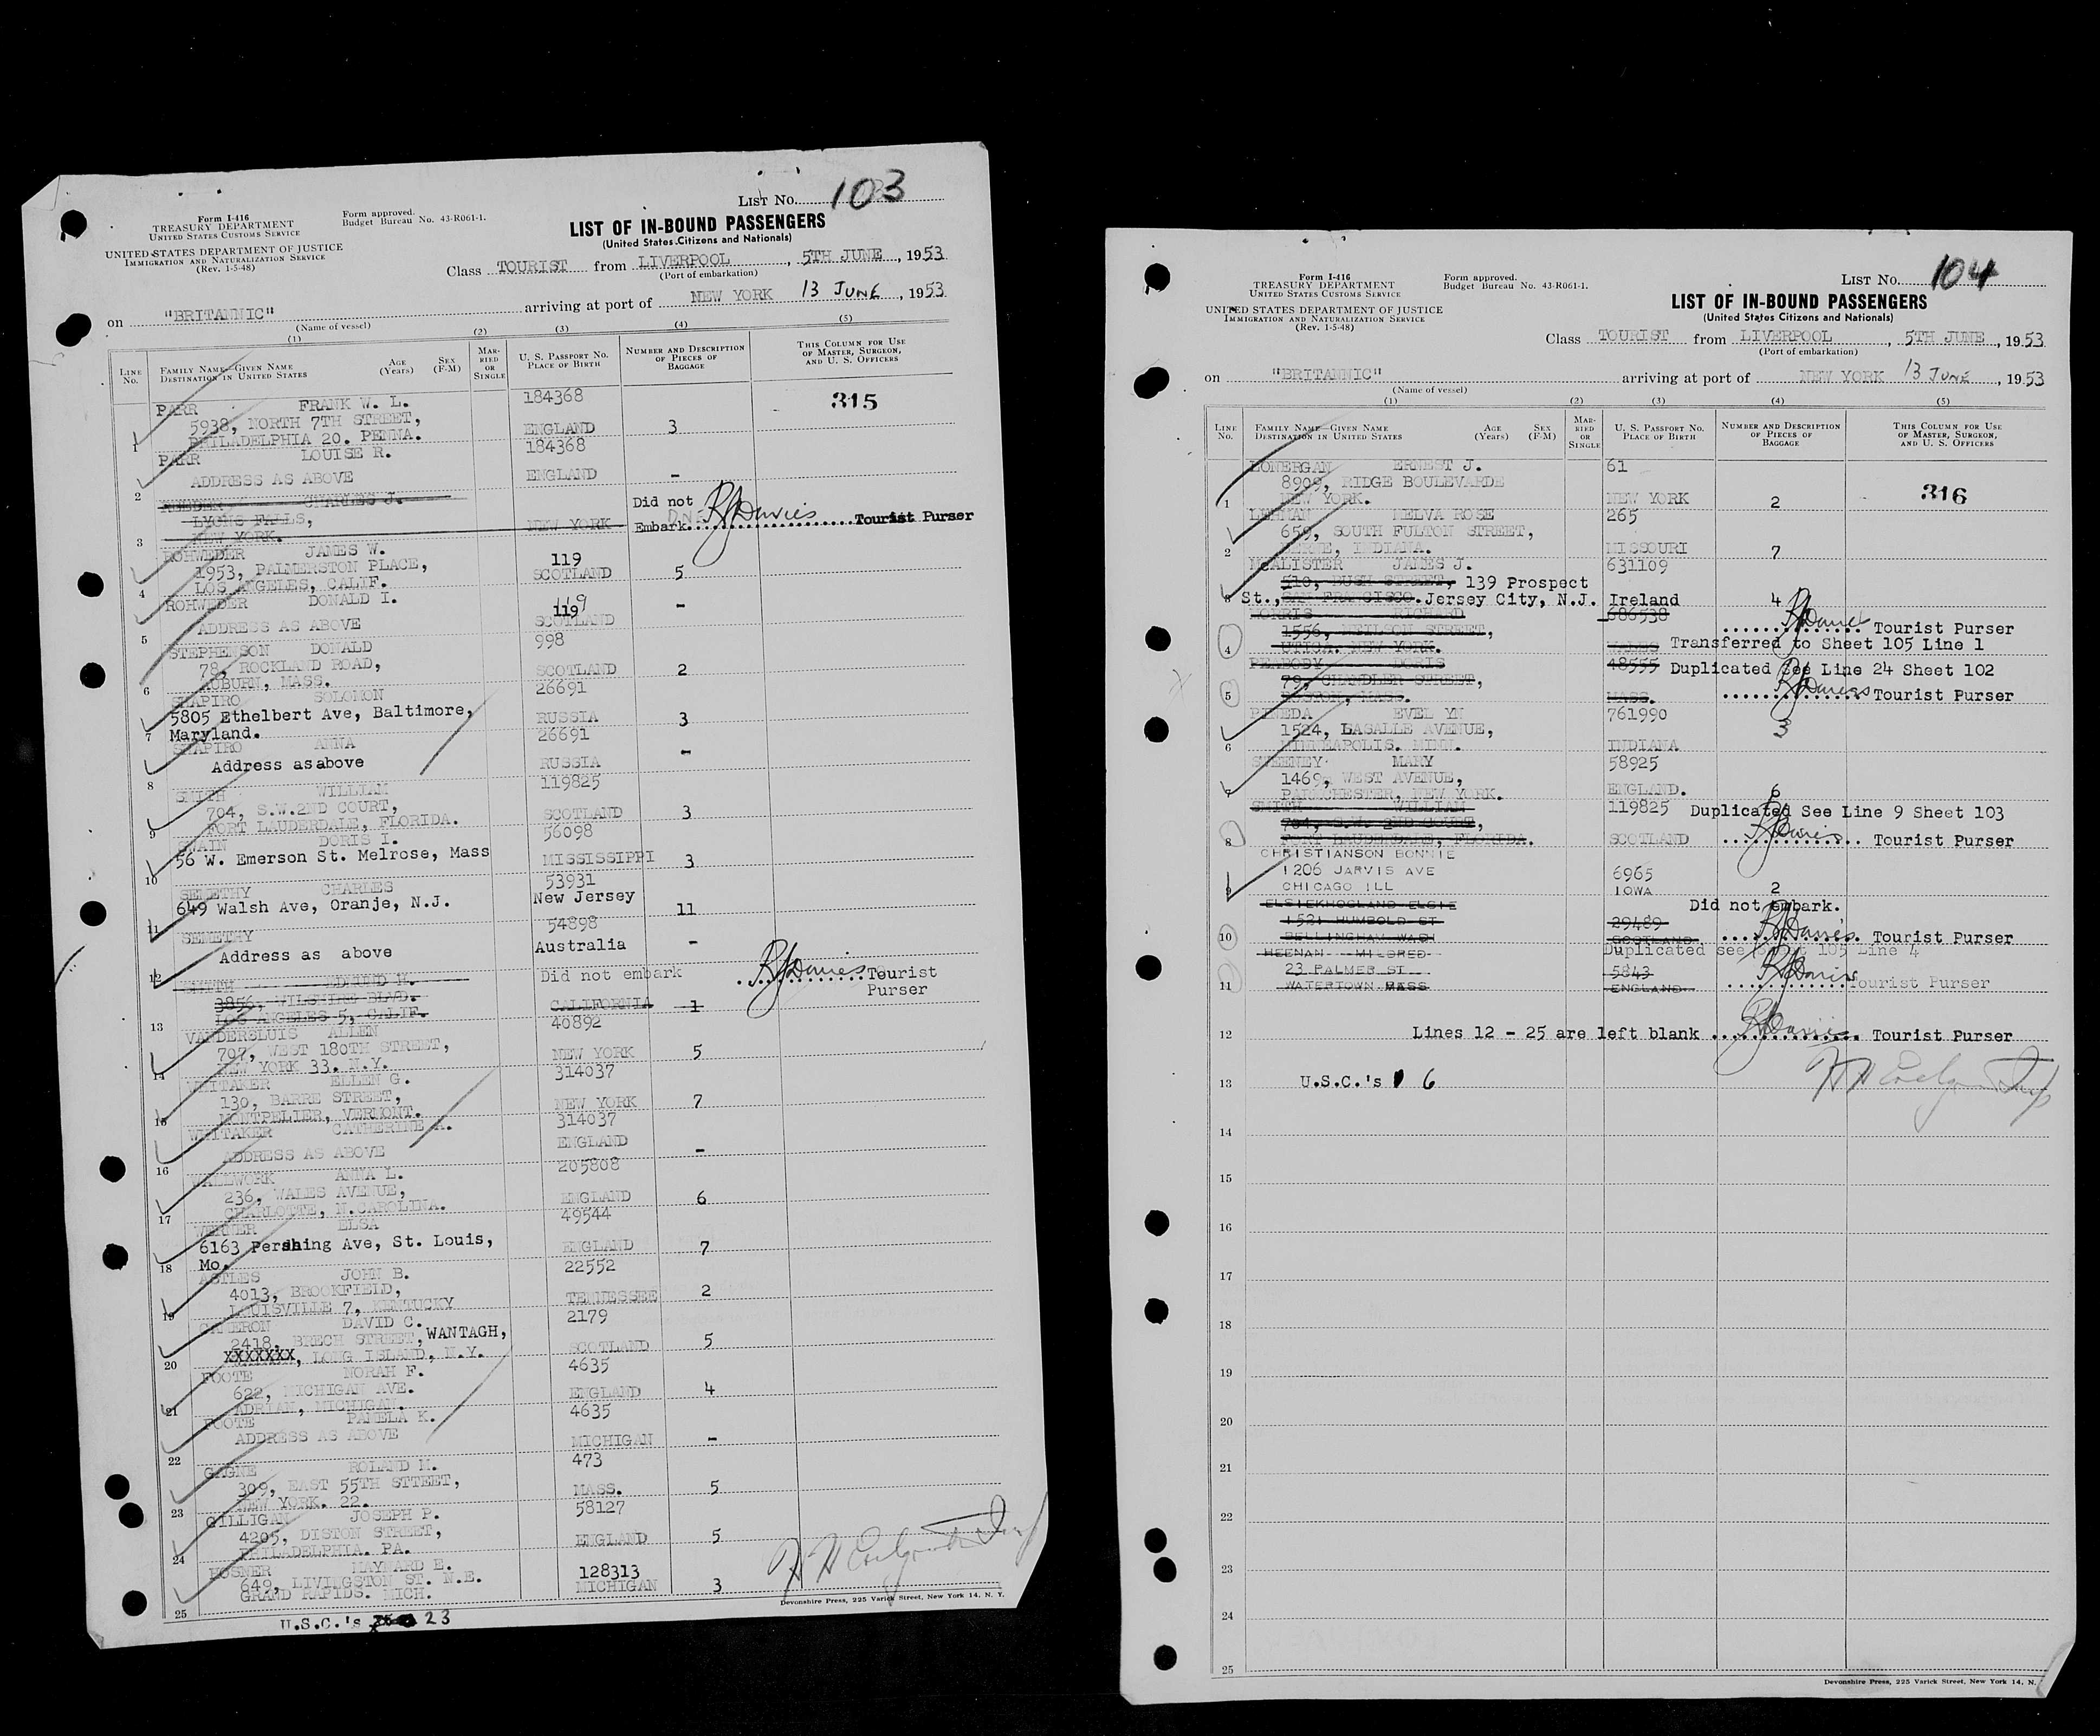 LIST No. 103
Form I-416
TREASURY DEPARTMENT
UNITED STATES CUSTOMS SERVICE
Form approved.
Budget Bureau No. 43-R061-1.
UNITED STATES DEPARTMENT OF JUSTICE
IMMIGRATION AND NATURALIZATION SERVICE
(Rev. 1-5-48)
LIST OF IN-BOUND PASSENGERS
(United States Citizens and Nationals)
Class TOURIST from LIVERPOOL, 5TH JUNE, 1953
(Port of embarkation)
on "BRITANNIC" arriving at port of NEW YORK 13 JUNE, 1953
(Name of vessel)
(1) (2) (3) (4) (5)
LINE No. FAMILY NAME—GIVEN NAME DESTINATION IN UNITED STATES AGE (Years) SEX (F-M) MARRIED OR SINGLE U. S. PASSPORT No. PLACE OF BIRTH NUMBER AND DESCRIPTION OF PIECES OF BAGGAGE THIS COLUMN FOR USE OF MASTER, SURGEON, AND U. S. OFFICERS
PARR FRANK W. L. 184368 315
5938, NORTH 7TH STREET,
1 PHILADELPHIA 20. PENNA. ENGLAND 3
PARR LOUISE R. 184368
2 ADDRESS AS ABOVE ENGLAND -
ROEDER CHARLES J. Did not
LYONS FALLS,
3 NEW YORK. NEW YORK Embark. R Davies Tourist Purser
ROHWEDER JAMES W. 119
1953, PALMERSTON PLACE,
4 LOS ANGELES, CALIF. SCOTLAND 5
ROHWEDER DONALD I. 119 119
5 ADDRESS AS ABOVE SCOTLAND -
STEPHENSON DONALD 998
78, ROCKLAND ROAD,
6 AUBURN, MASS. SCOTLAND 2
SHAPIRO SOLOMON 26691
5805 Ethelbert Ave, Baltimore,
7 Maryland. RUSSIA 3
SHAPIRO ANNA 26691
8 Address as above RUSSIA -
SMITH WILLIAM 119825
704, S.W.2ND COURT,
9 FORT LAUDERDALE, FLORIDA. SCOTLAND 3
SWAIN DORIS I. 56098
10 56 W. Emerson St. Melrose, Mass MISSISSIPPI 3
SEMETHY CHARLES 53931
11 649 Walsh Ave, Oranje, N.J. New Jersey 11
SEMETHY 54898
12 Address as above Australia -
SMITH EDMUND M. Did not embark R Davies Tourist Purser
3856, WILSHIRE BLVD.
13 LOS ANGELES 5, CALIF. CALIFORNIA 1
VANDERSLUIS ALLEN 40892
707, WEST 180TH STREET,
14 NEW YORK 33. N.Y. NEW YORK 5
WHITAKER ELLEN G. 314037
130, BARRE STREET,
15 MONTPELIER, VERMONT. NEW YORK 7
WHITAKER CATHERINE A. 314037
16 ADDRESS AS ABOVE ENGLAND -
WALLWORK ANNA L. 205808
236, WALES AVENUE,
17 CHARLOTTE, N.CAROLINA. ENGLAND 6
WERNER ELSA 49544
6163 Pershing Ave, St. Louis,
18 Mo. ENGLAND 7
ASTLES JOHN B. 22552
4013, BROOKFIELD,
19 LOUISVILLE 7, KENTUCKY TENNESSEE 2
CAMERON DAVID C. 2179
2418, BRECH STREET, WANTAGH,
20 XXXXXXX, LONG ISLAND, N.Y. SCOTLAND 5
FOOTE NORAH F. 4635
622, MICHIGAN AVE.
21 ADRIAN, MICHIGAN. ENGLAND 4
FOOTE PAMELA K. 4635
22 ADDRESS AS ABOVE MICHIGAN -
GAGNE ROLAND M. 473
309, EAST 55TH STTEET,
23 NEW YORK. 22. MASS. 5
GILLIGAN JOSEPH P. 58127
4205, DISTON STREET,
24 PHILADELPHIA. PA. ENGLAND 5
HOSNER MAYNARD E. 128313
649, LIVINGSTON ST. N.E.
25 GRAND RAPIDS. MICH. MICHIGAN 3
Devonshire Press, 225 Varick Street, New York 14, N. Y.
U.S.C.'s 23
LIST No. 104
Form I-416
TREASURY DEPARTMENT
UNITED STATES CUSTOMS SERVICE
Form approved.
Budget Bureau No. 43-R061-1.
UNITED STATES DEPARTMENT OF JUSTICE
IMMIGRATION AND NATURALIZATION SERVICE
(Rev. 1-5-48)
LIST OF IN-BOUND PASSENGERS
(United States Citizens and Nationals)
Class TOURIST from LIVERPOOL, 5TH JUNE, 1953
(Port of embarkation)
on "BRITANNIC" arriving at port of NEW YORK 13 JUNE, 1953
(Name of vessel)
(1) (2) (3) (4) (5)
LINE No. FAMILY NAME—GIVEN NAME DESTINATION IN UNITED STATES AGE (Years) SEX (F-M) MARRIED OR SINGLE U. S. PASSPORT No. PLACE OF BIRTH NUMBER AND DESCRIPTION OF PIECES OF BAGGAGE THIS COLUMN FOR USE OF MASTER, SURGEON, AND U. S. OFFICERS
LONERGAN ERNEST J. 61
8909, RIDGE BOULEVARDE 316
1 NEW YORK. NEW YORK 2
LEHMAN MELVA ROSE 265
659, SOUTH FULTON STREET,
2 BERNE, INDIANA. MISSOURI 7
McALISTER JAMES J. 631109
510, BUSH STREET, 139 Prospect
3 St., SAN FRANCISCO. Jersey City, N.J. Ireland 4
MORRIS RICHARD 686538 R Davies Tourist Purser
1556, NEILSON STREET,
4 UTICA. NEW YORK. WALES Transferred to Sheet 105 Line 1
PEABODY DORIS 48555 Duplicated See Line 24 Sheet 102
79, CHANDLER STREET,
5 BOSTON, MASS. MASS. R Davies Tourist Purser
PINEDA EVEL YN 761990
1524, LASALLE AVENUE, 3
6 MINNEAPOLIS. MINN. INDIANA
SWEENEY MARY 58925
1469, WEST AVENUE,
7 PARKCHESTER, NEW YORK. ENGLAND. 6
SMITH WILLIAM 119825 Duplicated See Line 9 Sheet 103
704, S.W. 2ND COURT,
8 FORT LAUDERDALE, FLORIDA. SCOTLAND R Davies Tourist Purser
CHRISTIANSON BONNIE
1206 JARVIS AVE 6965
9 CHICAGO ILL IOWA 2
ELSIEKHOGLAND ELSIE Did not embark.
1531 HUMBOLD ST 29489
10 BELLINGHAM WASH SCOTLAND R Davies Tourist Purser
HEENAN MILDRED Duplicated see Sheet 105 Line 4
23 PALMER ST 5843
11 WATERTOWN MASS ENGLAND R Davies Tourist Purser
12 Lines 12 - 25 are left blank R Davies Tourist Purser
13 U.S.C.'s 6
14
15
16
17
18
19
20
21
22
23
24
25
Devonshire Press, 225 Varick Street, New York 14, N.